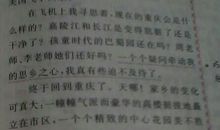 在飞机上我寻思着,现在的重庆会是什
么样的?嘉陵江和长江是变得肮脏了还是
干净了?孩童时代的巴蜀园还在吗?周老
师、李老师她们还好吗?一个个疑问牵动我
的思乡之心,我真有些迫不及待了。
终于回到重庆了。天哪!家乡的变化
可真大:一幢幢气派而豪华的高楼錯落地矗
立在市区,一个个精致的中心花园美不